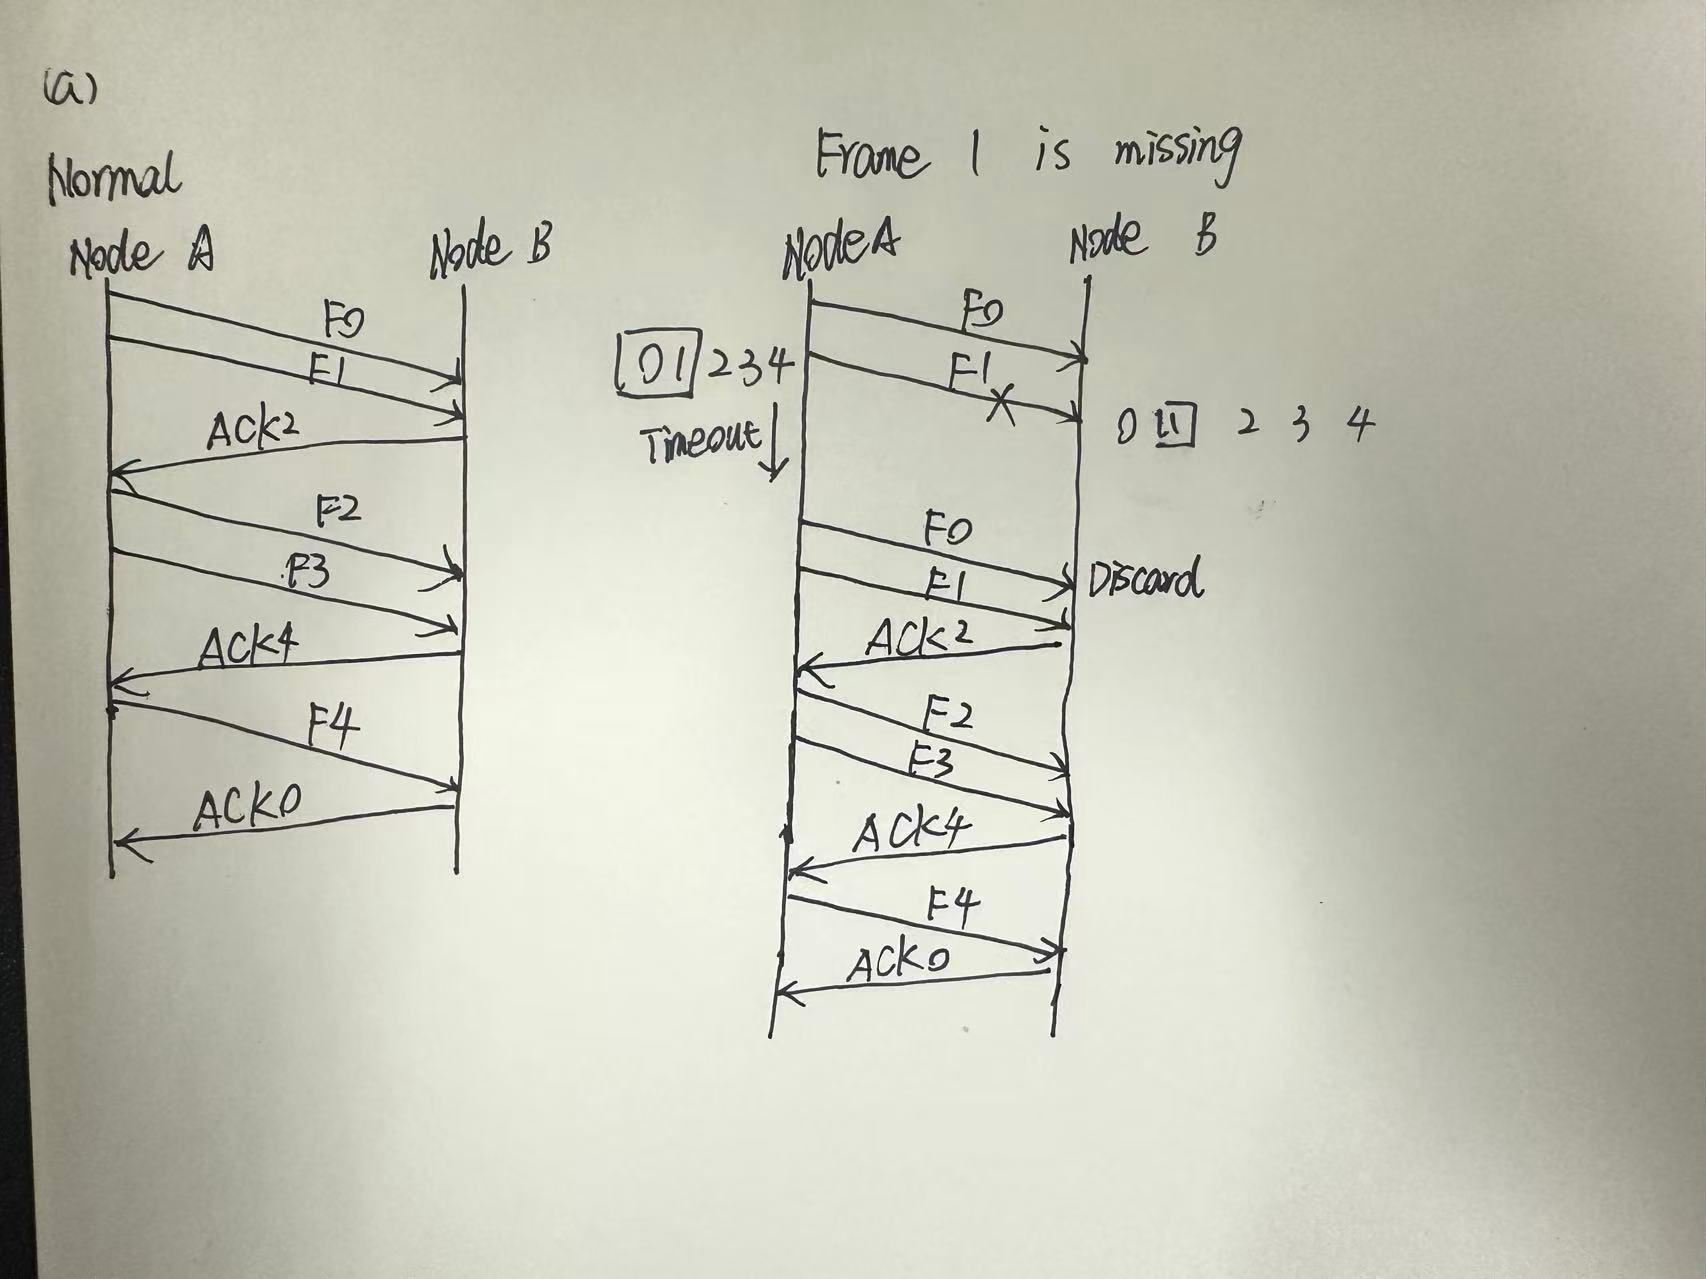 (a)
Normal
Node A Node B
F0
F1
ACK2
F2
F3
ACK4
F4
ACK0
Frame 1 is missing
Node A Node B
F0
0 1 2 3 4
F1
Timeout
0 2 3 4
F0
Discard
F1
ACK2
F2
F3
ACK4
F4
ACK0